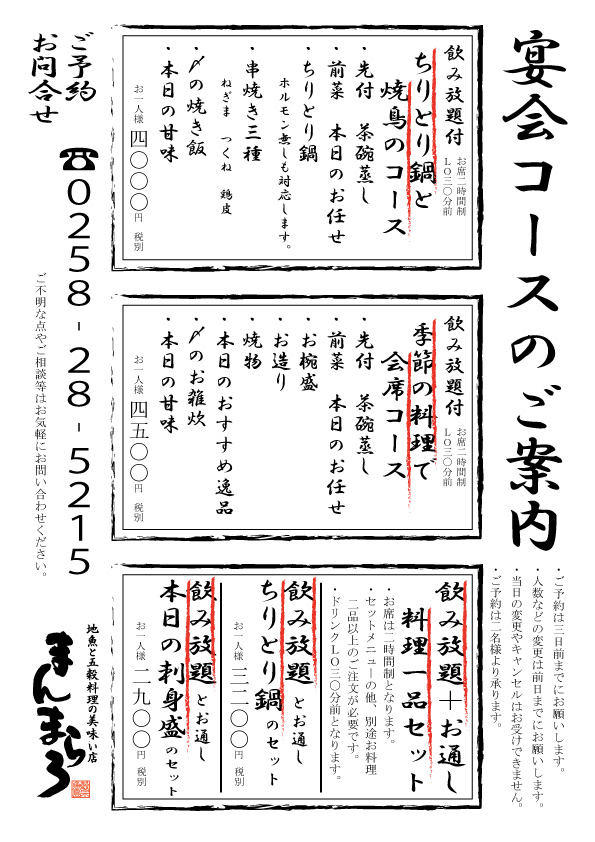 宴会コースのご案内
・ご予約は三日前までにお願いします。
・人数などの変更は前日までにお願いします。
・当日の変更やキャンセルはお受けできません。
・ご予約は二名様より承ります。
飲み放題付
お席二時間制
LO三〇分前
ちりとり鍋と
焼鳥のコース
・先付　茶碗蒸し
・前菜　本日のお任せ
・ちりとり鍋
ホルモン無しも対応します。
・串焼き三種
ねぎま　つくね　鶏皮
・〆の焼き飯
・本日の甘味
お一人様 四〇〇〇円 税別
飲み放題付
お席二時間制
LO三〇分前
季節の料理で
会席コース
・先付　茶碗蒸し
・前菜　本日のお任せ
・お椀盛
・お造り
・焼物
・本日のおすすめ逸品
・〆のお雑炊
・本日の甘味
お一人様 四五〇〇円 税別
飲み放題＋お通し
料理一品セット
・お席は二時間制となります。
・セットメニューの他、別途お料理
二品以上のご注文が必要です。
・ドリンクLO三〇分前となります。
飲み放題とお通し
ちりとり鍋のセット
お一人様 三二〇〇円 税別
飲み放題とお通し
本日の刺身盛のセット
お一人様 二九〇〇円 税別
ご予約
お問合せ
☎0258-28-5215
ご不明な点やご相談等はお気軽にお問い合わせください。
地魚と五穀料理の美味い店
まんまらろ